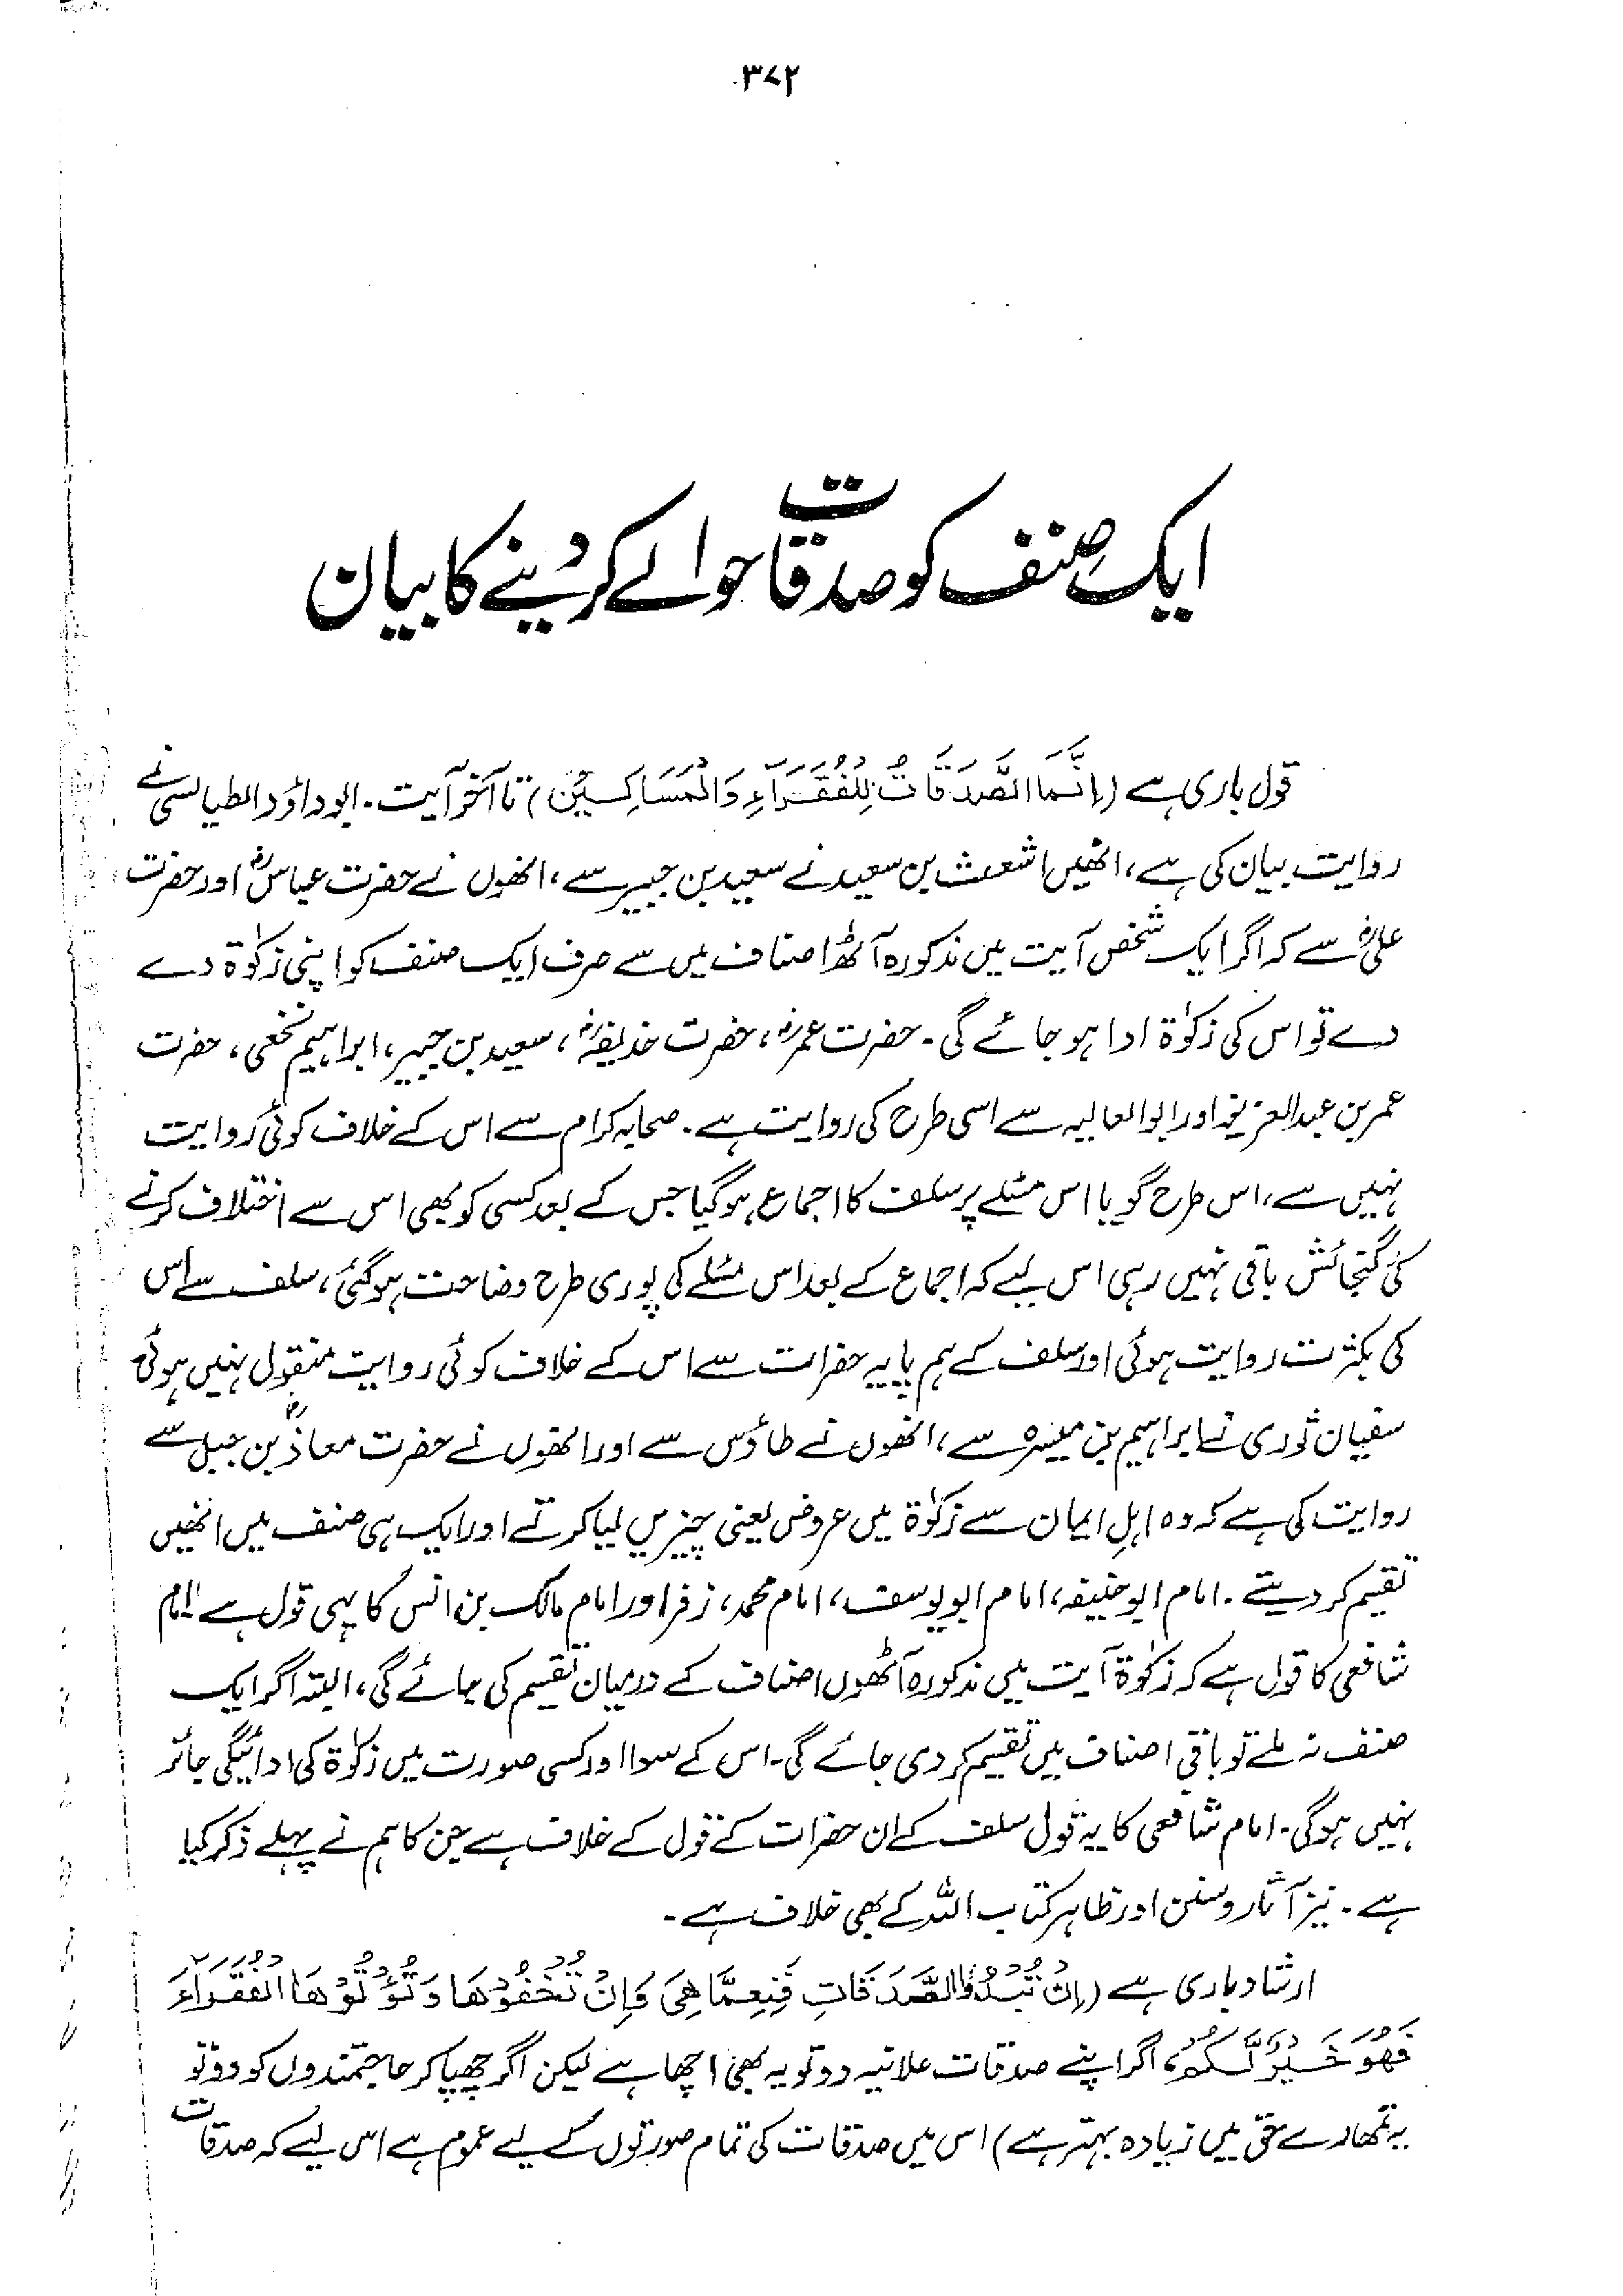 ۳۷۲
ایک صنف کو صدقات حوالے کر دینے کا بیان
قول باری ہے (اِنَّمَا الصَّدَقَاتُ لِلْفُقَرَآءِ وَالْمَسَاكِيْنِ) تا آخر آیت۔ ابو داؤد الطیالسی نے
روایت بیان کی ہے، انھیں اشعث بن سعید نے سعید بن جبیر سے، انھوں نے حضرت عباسؓ اور حضرت
علیؓ سے کہ اگر ایک شخص آیت میں مذکورہ آٹھ اصناف میں سے صرف ایک صنف کو اپنی زکوٰۃ دے
دے تو اس کی زکوٰۃ ادا ہو جائے گی۔ حضرت عمرؓ، حضرت حذیفہؓ، سعید بن جبیر، ابراہیم نخعی، حضرت
عمر بن عبدالعزیز اور ابوالعالیہ سے اسی طرح کی روایت ہے۔ صحابہ کرام سے اس کے خلاف کوئی روایت
نہیں ہے، اس طرح گویا اس مسئلے پر سلف کا اجماع ہو گیا جس کے بعد کسی کو بھی اس سے اختلاف کرنے
کی گنجائش باقی نہیں رہی اس لیے کہ اجماع کے بعد اس مسئلے کی پوری طرح وضاحت ہو گئی، سلف سے اس
کی بکثرت روایت ہوئی اور سلف کے ہم پایہ حضرات سے اس کے خلاف کوئی روایت منقول نہیں ہوئی
سفیان ثوری نے ابراہیم بن میسرہ سے، انھوں نے طاؤس سے اور انھوں نے حضرت معاذؓ بن جبل سے
روایت کی ہے کہ وہ اہلِ ایمان سے زکوٰۃ میں عروض یعنی چیزیں لیا کرتے اور ایک ہی صنف میں انھیں
تقیم کر دیتے۔ امام ابو حنیفہ، امام ابو یوسف، امام محمد، زفر اور امام مالک بن انس کا یہی قول ہے امام
شافعی کا قول ہے کہ زکوٰۃ آیت میں مذکورہ آٹھوں اصناف کے درمیان تقیسم کی جائے گی، البتہ اگر ایک
صنف نہ ملے تو باقی اصناف میں تقیسم کر دی جائے گی۔ اس کے سوا اور کسی صورت میں زکوٰۃ کی ادائیگی جائز
نہیں ہو گی۔ امام شافعی کا یہ قول سلف کے ان حضرات کے قول کے خلاف ہے جن کا ہم نے پہلے ذکر کیا
ہے۔ نیز آثار و سنن اور ظاہر کتاب اللہ کے بھی خلاف ہے۔
ارشاد باری ہے (اِنْ تُبْدُوا الصَّدَقَاتِ فَنِعِمَّا هِيَ وَاِنْ تُخْفُوْهَا وَتُؤْتُوْهَا الْفُقَرَآءَ
فَهُوَ خَيْرٌ لَّكُمْ، اگر اپنے صدقات علانیہ دو تو یہ بھی اچھا ہے لیکن اگر چھپا کر حاجتمندوں کو دو تو
یہ تمھارے حق میں زیادہ بہتر ہے) اس میں صدقات کی تمام صورتوں کے لیے عموم ہے اس لیے کہ صدقات